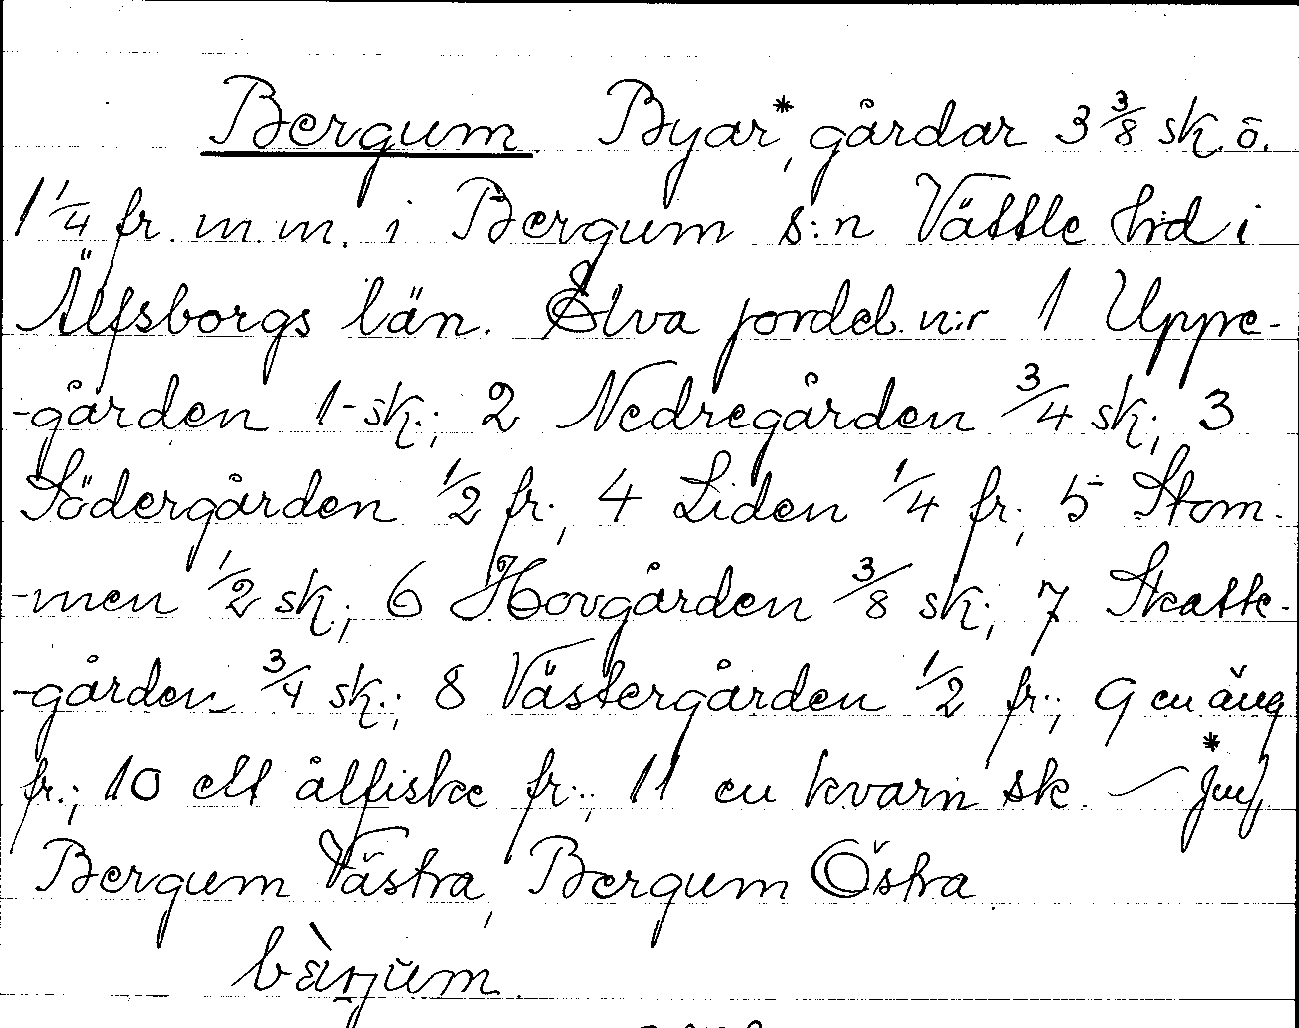 Bergum. Byar*, gårdar 3 3/8 sk. o.
1 1/4 fr. m.m. i Bergum s:n Vättle hd i
Älfsborgs län. Elva jordeb. n:r 1 Uppe-
-gården 1 - sk.; 2 Nedregården 3/4 sk.; 3
Södergården 1/2 fr.; 4 Liden 1/4 fr.; 5 Stom-
-men 1/2 sk.; 6 Hovgården 3/8 sk.; 7 Skatte-
-gården 3/4 sk.; 8 Västergården 1/2 fr.; 9 en äng
fr.; 10 ett ålfiske fr.; 11 en kvarn sk. — *Jmf,
Bergum Västra, Bergum Östra.
bærjum.